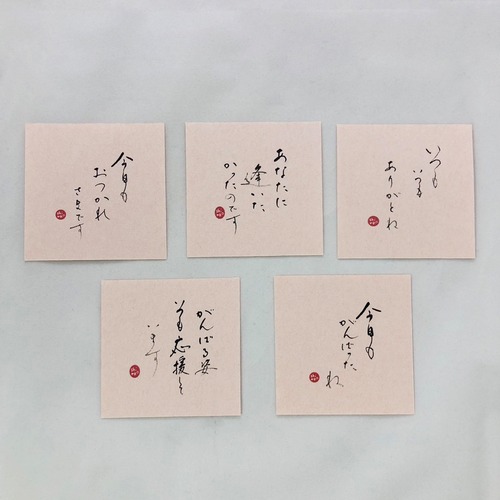 今日も
おつかれ
さまです
あなたに
逢いた
かったのです
いつも
いつも
ありがとね
がんばる姿
いつも応援して
います
今日も
がんばった
ね